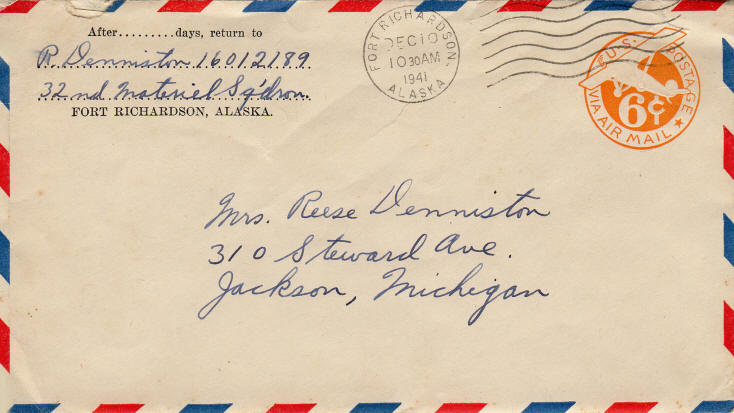 After.........days, return to
R. Denniston 16012189
32nd Materiel Sq'dron.
FORT RICHARDSON, ALASKA.
FORT RICHARDSON,
DEC 10
10 30 AM
1941
ALASKA
U.S. POSTAGE
6¢
VIA AIR MAIL
Mrs. Reese Denniston
310 Steward Ave.
Jackson, Michigan